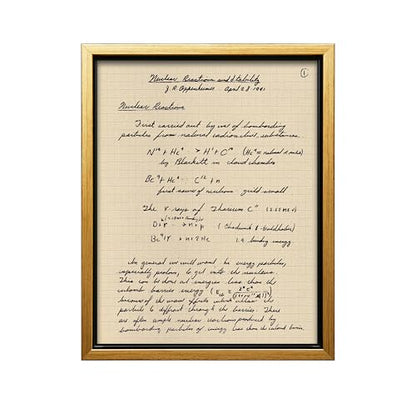 ①
Nuclear Reactions and Stability
J. R. Oppenheimer April 23 1941
Nuclear Reactions
First carried out by use of bombarding
particles from natural radioactive substances.
N¹⁴ + He⁴ → H¹ + O¹⁷ (He⁴ = natural α rays)
by Blackett in cloud chamber
Be⁹ + He⁴ C¹² + n
first source of neutrons yield small
The γ rays of Thorium C" (2.62 MeV)
D + γ → n + p (Chadwick & Goldhaber)
Be⁹ + γ → n + 2He 1.6 binding energy
In general we will want to energy particles,
especially protons, to get into the nucleus.
This can be done at energies less than the
coulomb barrier energy
because of the wave effects which allow the
particle to diffract through the barrier. There
are often ample nuclear reactions produced by
bombarding particles of energy less than the coulomb barrier.